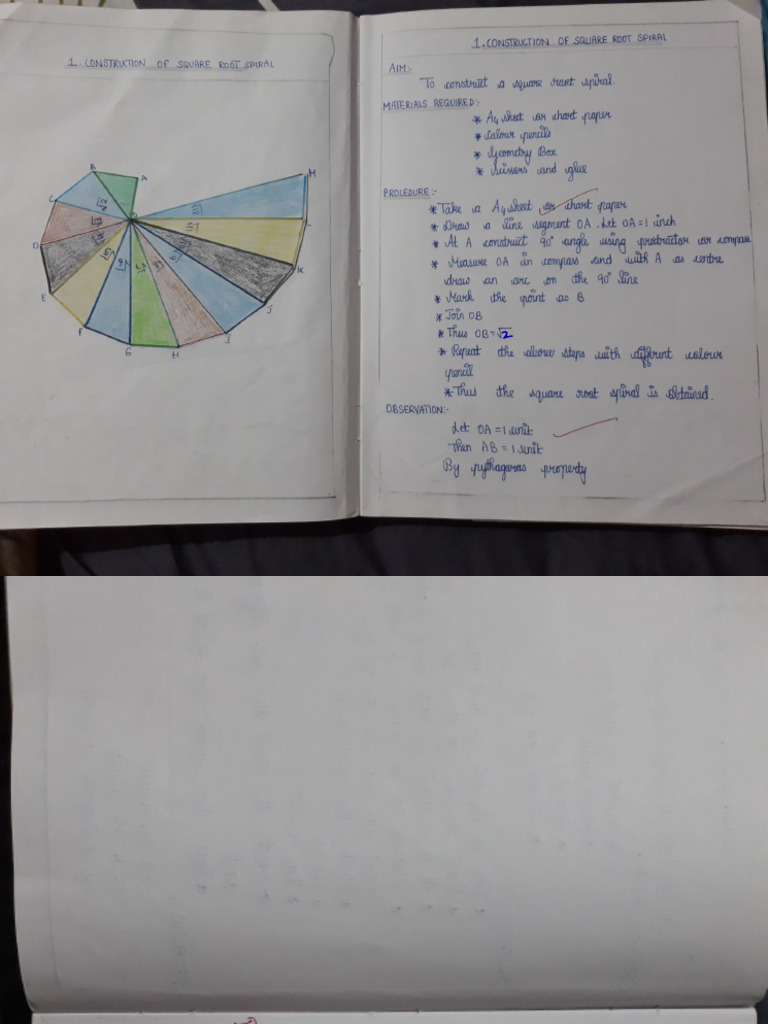 1. CONSTRUCTION OF SQUARE ROOT SPIRAL
B
A
C
M
O
L
D
K
E
J
F
I
G
H
1. CONSTRUCTION OF SQUARE ROOT SPIRAL
AIM:-
To construct a square root spiral.
MATERIALS REQUIRED:-
* A4 sheet or chart paper
* Colour pencils
* Geometry Box
* Scissors and glue
PROCEDURE:-
* Take a A4 sheet or chart paper
* Draw a line segment OA. Let OA = 1 inch
* At A construct 90° angle using protractor or compass
* Measure OA in compass and with A as centre
draw an arc on the 90° line
* Mark the point as B
* Join OB
* Thus OB = √2
* Repeat the above steps with different colour
pencil
* Thus the square root spiral is obtained.
OBSERVATION:-
Let OA = 1 unit
Then AB = 1 unit
By pythagoras property